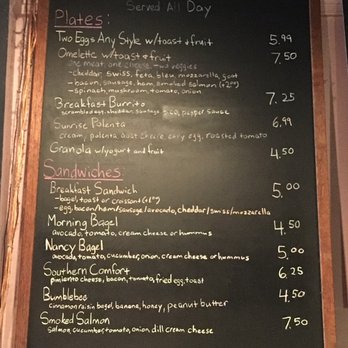 Served All Day
Plates:
Two Eggs Any Style w/toast & fruit 5.99
Omelette w/toast & fruit 7.50
one meat, one cheese, two veggies
-cheddar, swiss, feta, bleu, mozzarella, goat
-bacon, sausage, ham, smoked salmon
-spinach, mushroom, tomato, onion
Breakfast Burrito 7.25
scrambled egg, cheddar, sausage, pepper sauce
Sunrise Polenta 6.99
cream, polenta, goat cheese, egg, roasted tomato
Granola w/yogurt and fruit 4.50
Sandwiches:
Breakfast Sandwich 5.00
-bagel, toast or croissant
-egg, bacon/ham/sausage/avocado, cheddar/swiss/mozzarella
Morning Bagel 4.50
avocado, tomato, cream cheese or hummus
Nancy Bagel 5.00
avocado, tomato, cucumber, onion, cream cheese or hummus
Southern Comfort 6.25
pimiento cheese, bacon, tomato, fried egg, toast
Bumblebee 4.50
cinnamon raisin bagel, banana, honey, peanut butter
Smoked Salmon 7.50
salmon, cucumber, tomato, onion, dill cream cheese